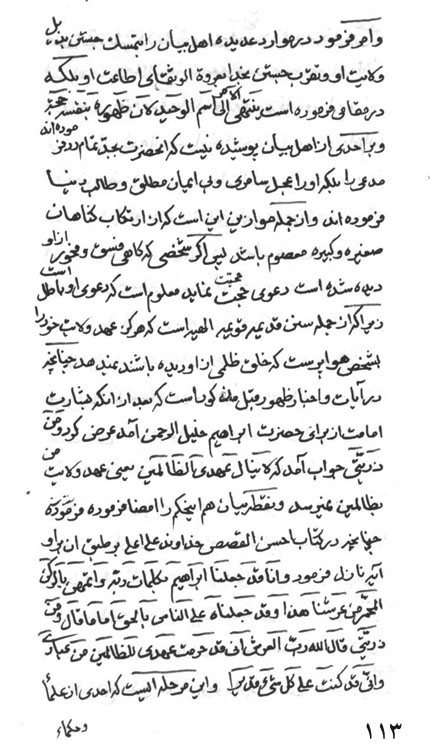 وامر فرمود در موارد عدیده اهل بیان را بتمسک جستن بذیل
ولایت او و تقرب جستن بخدا بعروة الوثقای اطاعت او بلکه
در مقامی فرموده است ینتهی الامر الی اسم الوحید لان ظهوره بنفسه حجة
و بر احدی از اهل بیان پوشیده نیست که انحضرت بجد تمام رد فرموده اند
مدعی را بلکه او را عجل سامری و بی ایمان مطلق و طالب دنیا
فرموده اند و از جمله موازین این است که از ارتکاب گناهان
صغیره و کبیره معصوم باشد پس اگر شخصی که گاهی فسق و فجور از او
دیده شده است دعوی حجیت نماید معلوم است که دعوی او باطل است
زیرا که از جمله سنن قدیمه قویمه الهیه است که هرگز عهد ولایت خود را
بشخص هواپرست که خلق ظلمی از او دیده باشند نمیدهد چنانچه
در آیات و اخبار ظهور قبل مذکور است که بعد از انکه بشارت
امامت از برای حضرت ابراهیم خلیل الرحمن آمد عرض کرد و من
ذریتی جواب آمد که لا ینال عهدی الظالمین یعنی عهد ولایت من
بظالمین نمیرسد و نقطه بیان هم اینحکم را امضا فرموده
چنانچه در کتاب احسن القصص خداوند علی اعلی بر طبق ان بر او
آیه نازل فرمود و انا قد جعلنا ابراهیم بکلمات ربه و اتمهن بالرکن
المحمر من عرشنا هذا و قد جعلناه علی الناس بالحق اماما قال و من
ذریتی قال الله رب العرش انی قد حرمت عهدی للظالمین من عبادی
و انی قد کنت علی کل شیء قدیرا و این مرحله ایست که احدی از علماء
و حکماء
۱۱۳